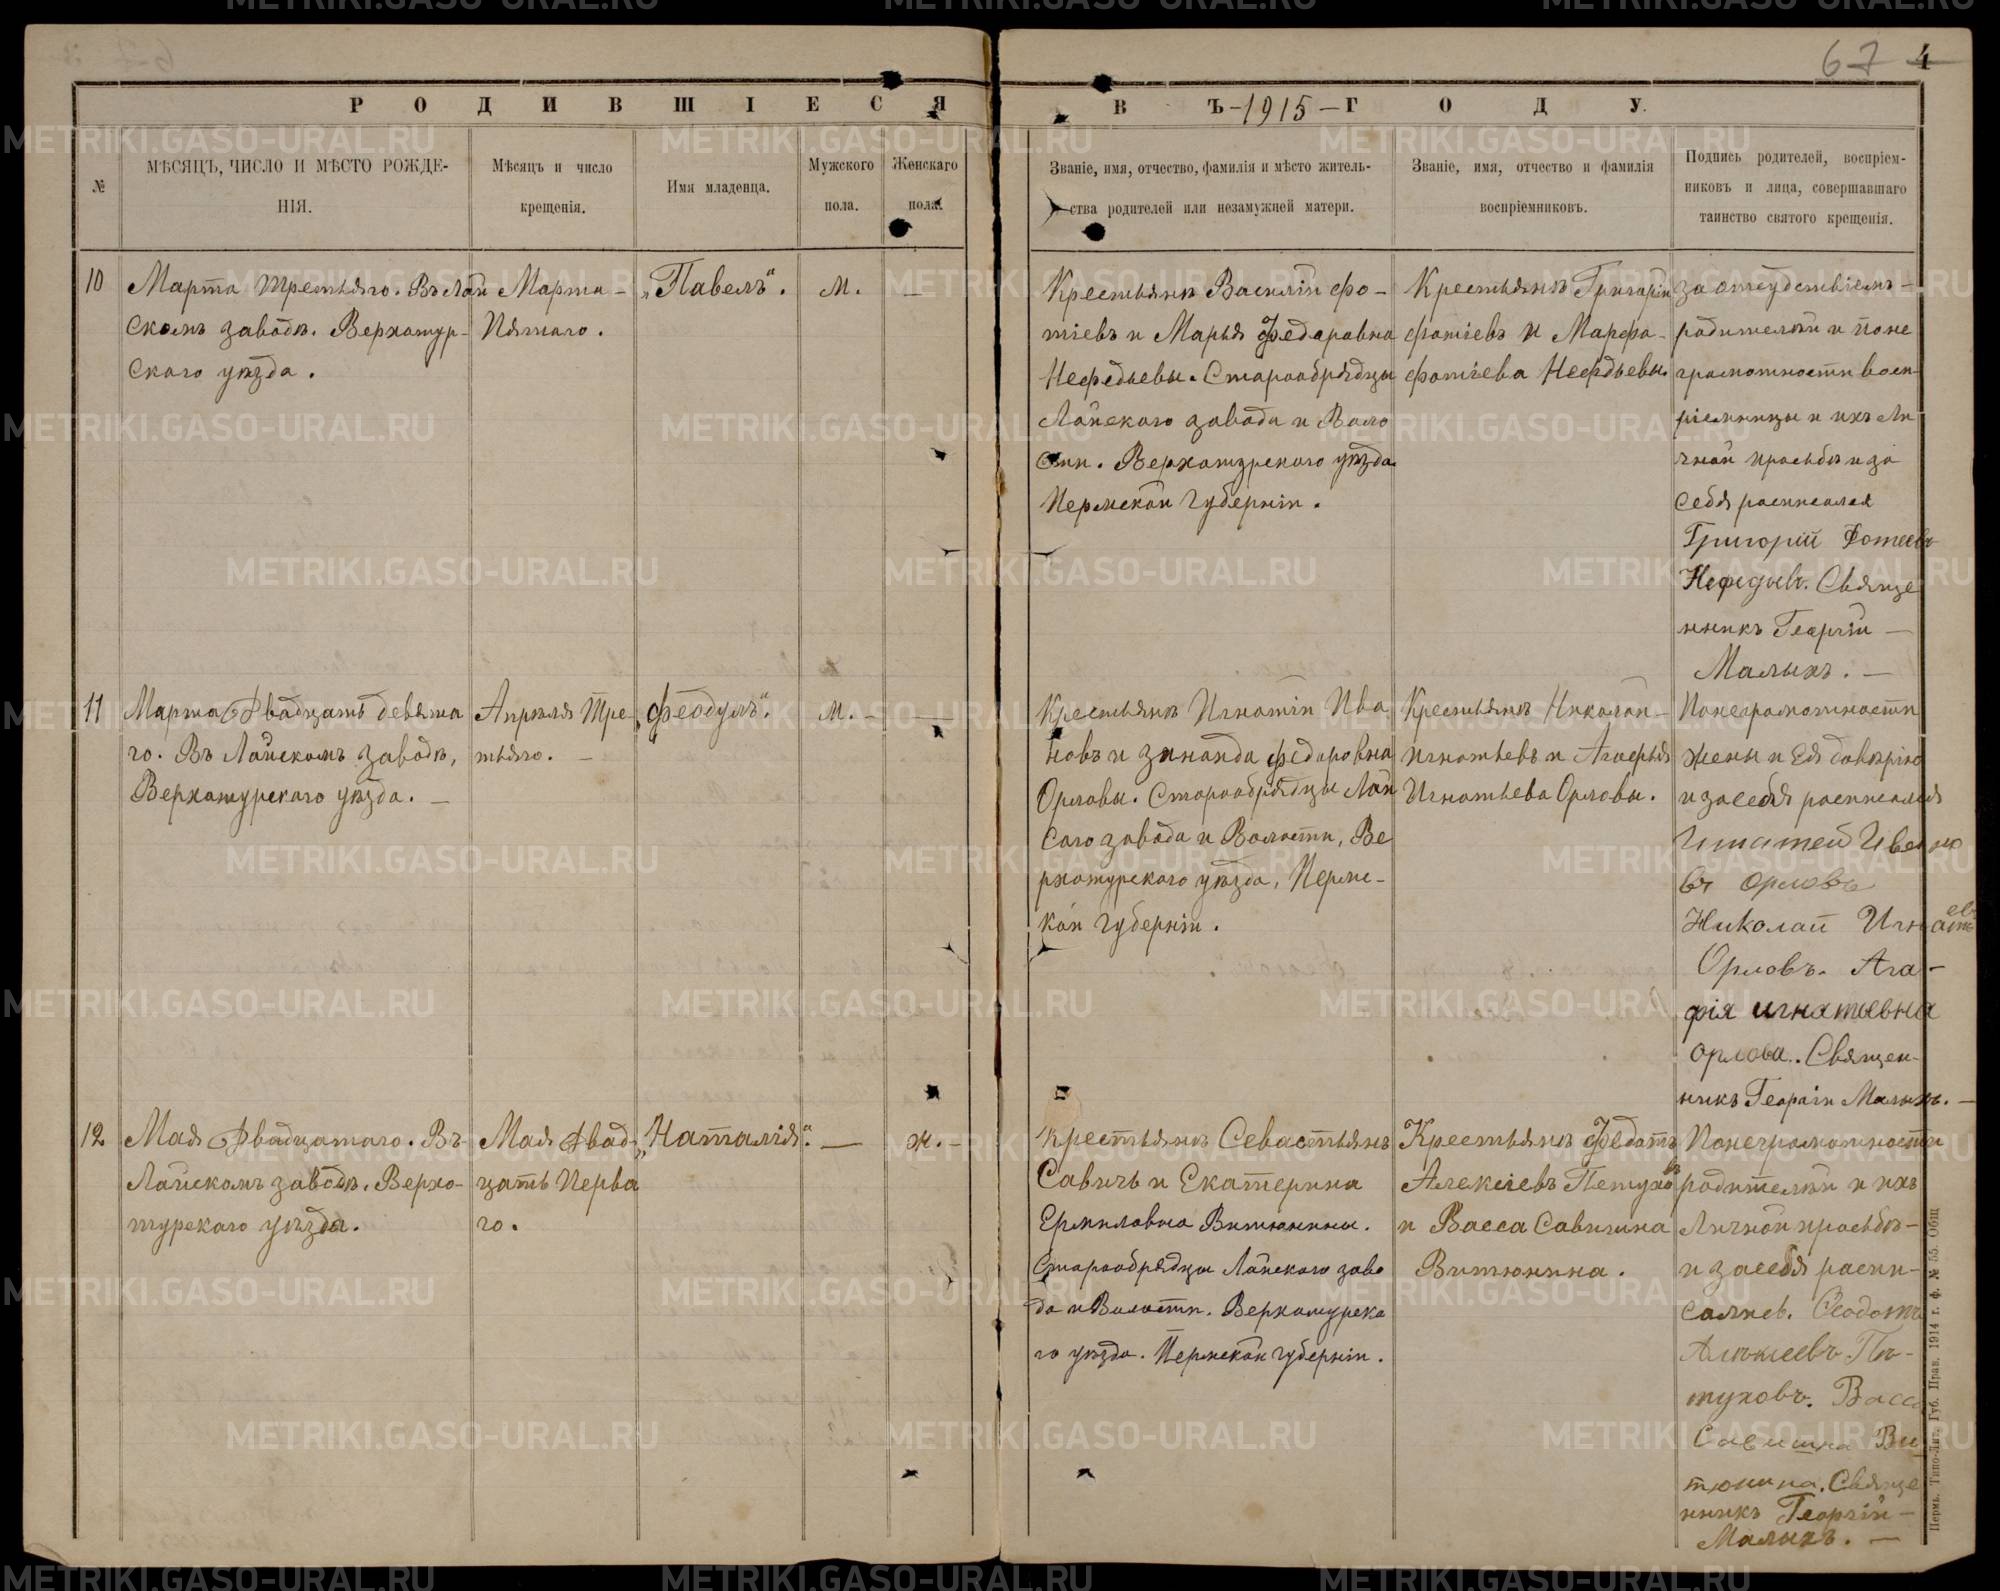 67 4
РОДИВШІЕСЯ
ВЪ -1915- ГОДУ.
№
МѢСЯЦЪ, ЧИСЛО И МѢСТО РОЖДЕ-
НІЯ.
Мѣсяцъ и число
крещенія.
Имя младенца.
Мужского
пола.
Женскаго
пола.
Званіе, имя, отчество, фамилія и мѣсто житель-
ства родителей или незамужней матери.
Званіе, имя, отчество и фамилія
воспріемниковъ.
Подпись родителей, воспріем-
никовъ и лица, совершавшаго
таинство святого крещенія.
10
Марта третьяго. Въ Лай
скомъ заводѣ. Верхотур-
скаго уѣзда.
Марта -
Пятаго.
„Павелъ“.
м.
—
Крестьянъ Василій фо-
тіевъ и Марья Федаровна
Нефедьевы. Старообрядцы
Лайскаго завода и Воло
сти. Верхотурскаго уѣзда
Пермской губерніи.
Крестьянъ Григорій
фотіевъ и Марфа-
фотіева Нефедьевы.
за отсудствіемъ-
родителѣй и поне
грамотности восп
ріемницы и ихъ Ли
чной просьбѣ и за
себя росписался
Григорій Фотеевъ
Нефедывъ. Свяще
нникъ Георгій —
Малыхъ. —
11
Марта Двадцать девята
го. Въ Лайскомъ заводѣ,
Верхотурскаго уѣзда. —
Апрѣля Тре
тьяго. —
„феодулъ“.
м. -
—
Крестьянъ Игнатій Ива
новъ и Зинаида федоровна
Орловы. Старообрядцы Лай
саго завода и Волости, Ве
рхотурскаго уѣзда, Пермс-
кой губерніи.
Крестьянъ Николай -
Игнатьевъ и Агафья
Игнатьева Орловы.
Понеграмотности
жены и Ея довѣрію
и засебя росписался
Игнатей Ивано
въ орловъ
Николай Игнатьевъ
Орловъ. Ага-
фія игнатьевна
орлова. Священ-
никъ Георгій Малыхъ. —
12
Мая Двадцатаго. Въ
Лайскомъ заводѣ. Верхо-
турскаго уѣзда.
Мая Двад
цать Перва
го.
„Наталія“.
—
ж. -
Крестьянъ Севастьянъ
Савичъ и Екатерина
Ермиловна Витюнины.
Старообрядцы Лайскаго заво
да и Волости. Верхотурска
го уѣзда. Пермской губерніи.
Крестьянъ Федотъ
Алексіевъ Петуховъ
и Васса Савишна
Витюнина.
Понеграмотности
родителѣй и ихъ
Личной просьбѣ-
и засебя роспи-
сались. Феодотъ
Алѣксеевъ Пѣ-
туховъ. Васса
Савишна Ви
тюнина. Свяще
нникъ Георгій —
Малыхъ. —
Пермь. Типо-Лит. Губ. Прав. 1914 г. ф. № 55. Общ
METRIKI.GASO-URAL.RU